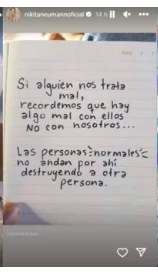 nikitaneumannoficial 14 h
Si alguien nos trata
mal,
recordemos que hay
algo mal con ellos
NO con nosotros...
Las personas "normales"
no andan por ahí
destruyendo a otra
persona.